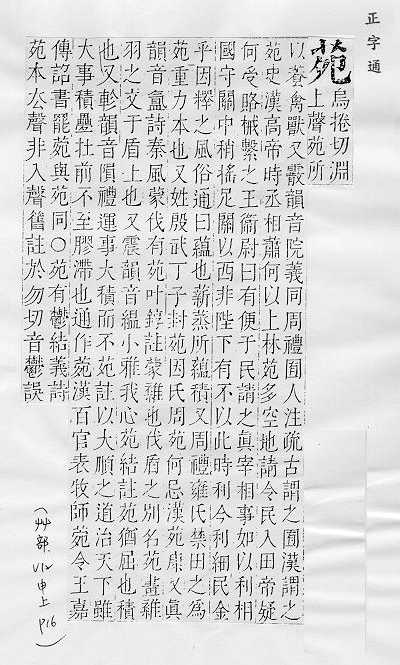 正字通
苑 烏捲切淵
上聲苑所
以養禽獸又霰韻音院義同周禮囿人注疏古謂之囿漢謂之
苑史漢高帝時丞相蕭何以上林苑多空地請令民入田帝疑
何受賂械繫之王衞尉曰有便于民請之眞宰相事如以利相
國守關中稍搖足關以西非陛下有不以此時利今利細民金
乎因釋之風俗通曰蘊也薪蒸所蘊積又周禮雍氏禁田之為
苑重力本也又姓殷武丁子封苑因氏周苑何忌漢苑康又眞
韻音詩秦風蒙伐有苑叶錞註蒙雜也伐盾之別名苑畫雜
羽之文于盾上也又震韻音縕小雅我心苑結註苑猶屈也積
也又軫韻音隕禮運事大積而不苑註以大順之道治天下雖
大事積疊壯前不至膠滯也通作菀漢百官表牧師苑令王嘉
傳詔書罷苑與菀同○苑有鬱結義詩
苑本厺聲非入聲舊註於勿切音鬱誤
(艸部 申上 P16)